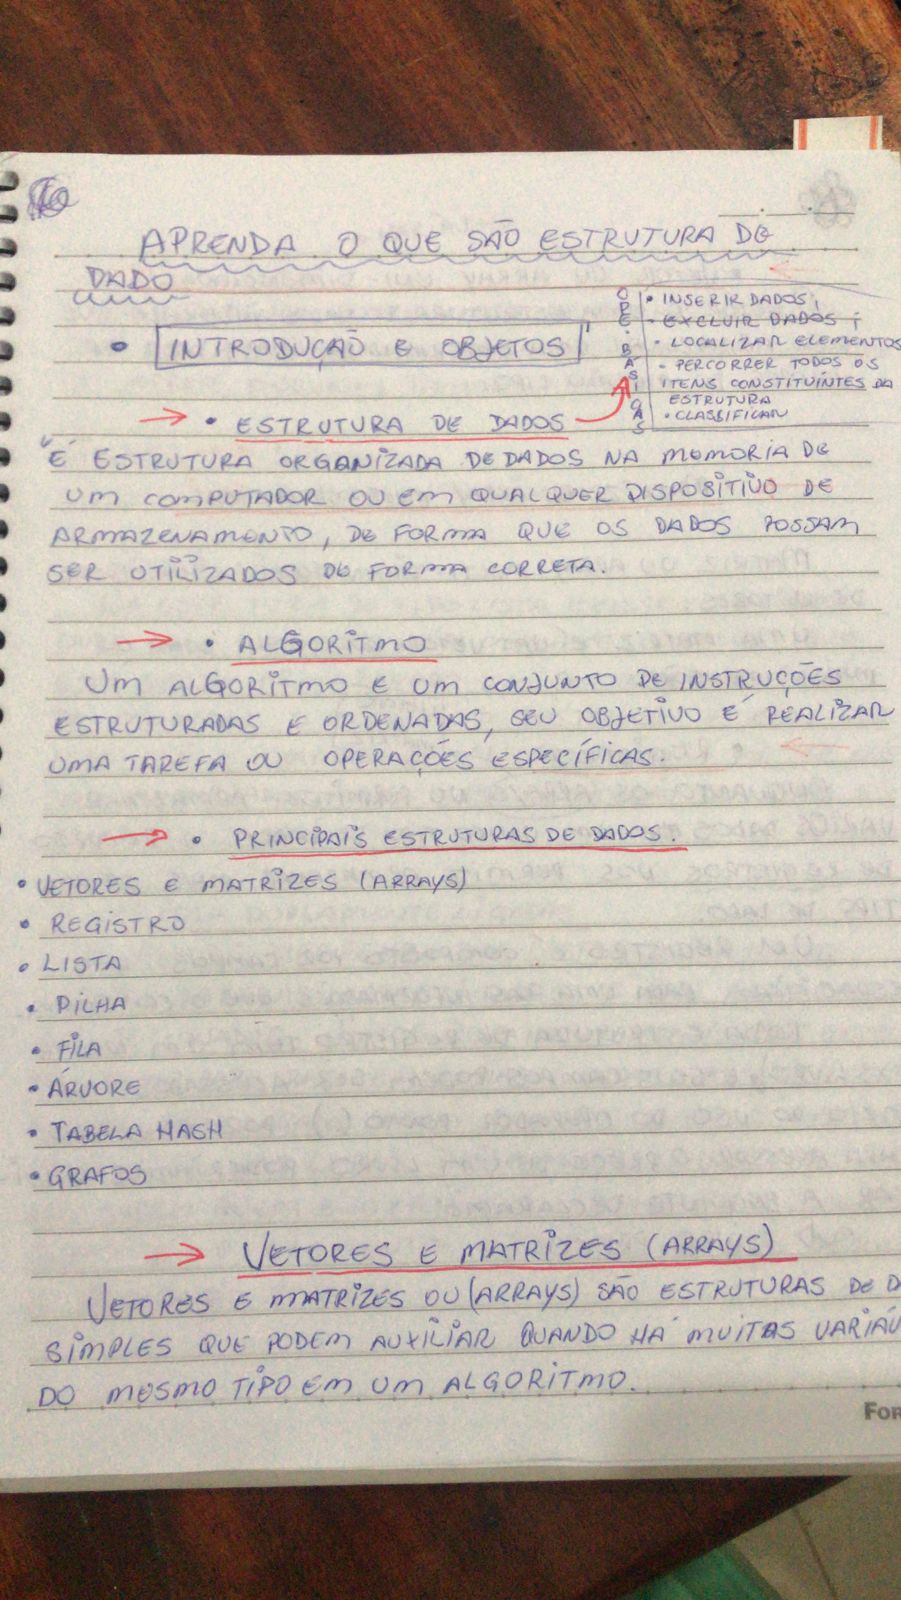 APRENDA O QUE SÃO ESTRUTURA DE
DADO
• INTRODUÇÃO E OBJETOS
OPE. BÁSICAS
• INSERIR DADOS;
• EXCLUIR DADOS;
• LOCALIZAR ELEMENTOS
• PERCORRER TODOS OS
ITENS CONSTITUÍNTES DA
ESTRUTURA
• CLASSIFICAR
→ • ESTRUTURA DE DADOS
É ESTRUTURA ORGANIZADA DE DADOS NA MEMORIA DE
UM COMPUTADOR OU EM QUALQUER DISPOSITIVO DE
ARMAZENAMENTO, DE FORMA QUE OS DADOS POSSAM
SER UTILIZADOS DE FORMA CORRETA.
→ • ALGORITMO
UM ALGORITMO E UM CONJUNTO DE INSTRUÇÕES
ESTRUTURADAS E ORDENADAS, SEU OBJETIVO É REALIZAR
UMA TAREFA OU OPERAÇÕES ESPECÍFICAS.
→ • PRINCIPAIS ESTRUTURAS DE DADOS.
• VETORES E MATRIZES (ARRAYS)
• REGISTRO
• LISTA
• PILHA
• FILA
• ÁRVORE
• TABELA HASH
• GRAFOS
→ VETORES E MATRIZES (ARRAYS)
VETORES E MATRIZES OU (ARRAYS) SÃO ESTRUTURAS DE D
SIMPLES QUE PODEM AUXILIAR QUANDO HÁ MUITAS VARIÁV
DO MESMO TIPO EM UM ALGORITMO.
FOR